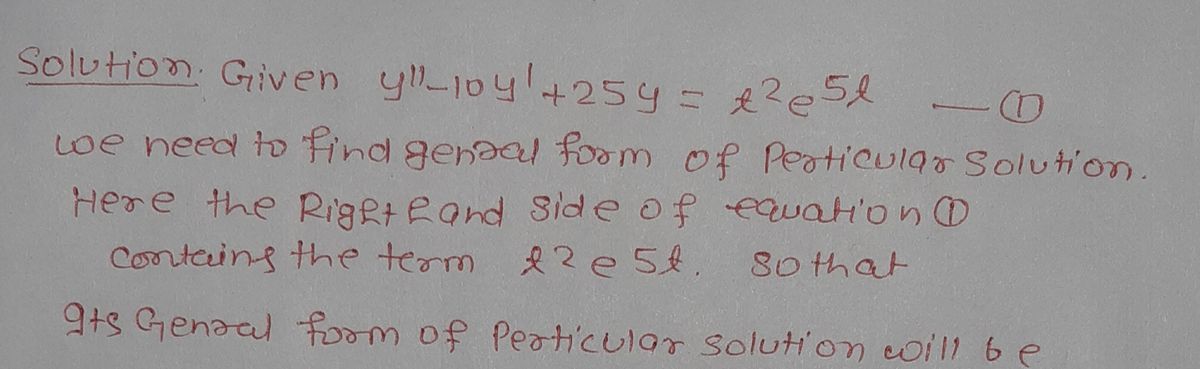 Solution. Given y''-10y'+25y = t²e⁵ᵗ —①
we need to find general form of Perticular Solution.
Here the Right hand side of equation ①
contains the term t²e5t. so that
Its General form of Perticular solution will be